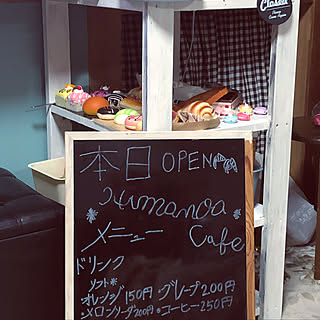 Closed
本日 OPEN
Numanoa
メニュー Cafe
ドリンク
ソフト
・オレンジ150円・グレープ200円
・メロンソーダ200円・コーヒー250円